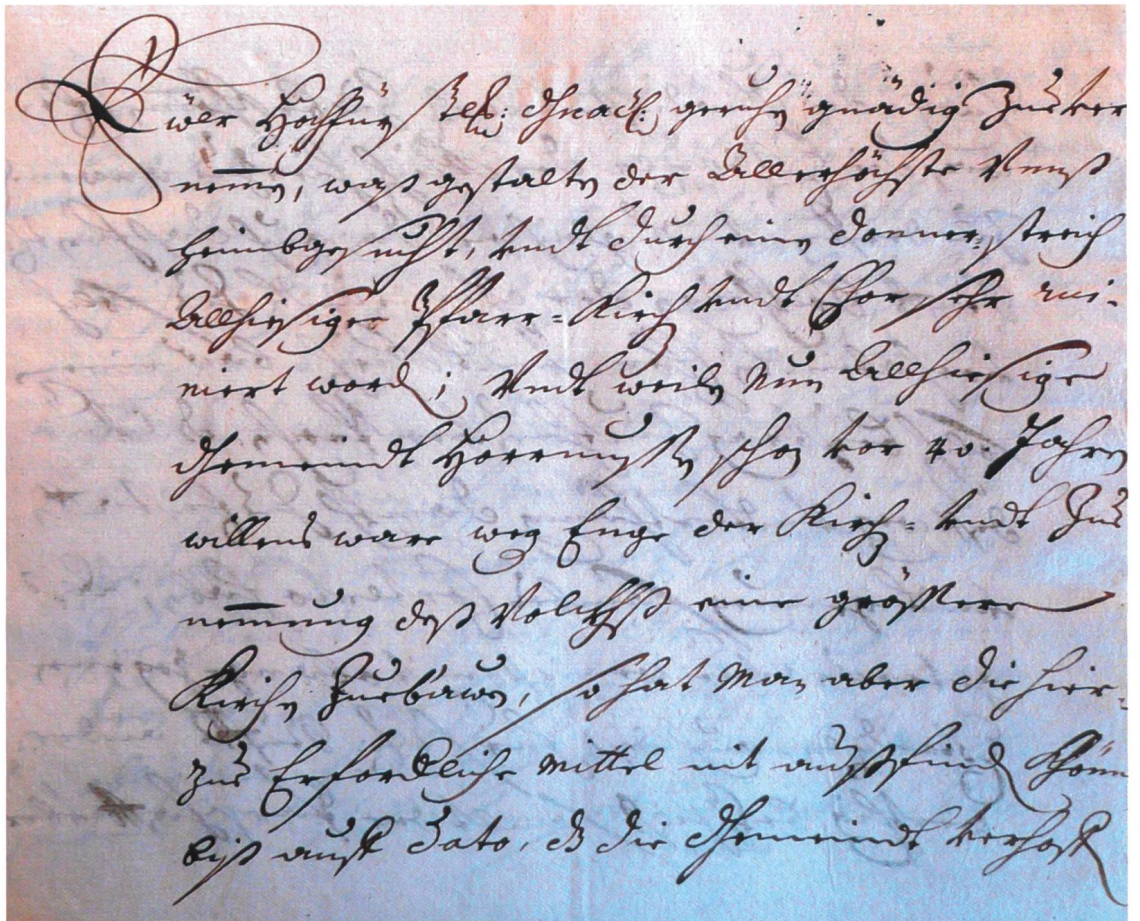 Ewer Hochfürstle: Gnad: geruhen gnädig Zuver
nemen, waß gestalten der Allerhöchste Vnß
heimbgesucht, vndt durch einen donner streich
Allhiesige Pfarr=Kirch vndt Chor sehr rui-
niert word; Vndt weilen Nun Allhiesige
Gemeindt schon vor 40. Jahren
willens ware weg Enge der Kirch= vndt Zue
nemung deß Volckhß eine grössere
Kirchen Zuebauwen, so hat Man aber die hier-
zue Erforderliche Mittel nit außfinden Könn
biß auff Dato, dz die Gemeindt verhoff